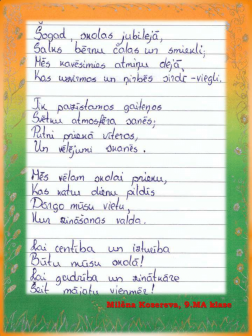 Šogad, skolas jubilejā,
Salks bērnu čalas un smiekli;
Mēs kavēsimies atmiņu dejā,
Kas uzvirmos un nirbēs sirdī - viegli.
Tik pazīstamos gaiteņos
Svētku atmosfēra sanēs;
Putni priekā vīteros,
Un vēlējumi skanēs.
Mēs vēlam skolai prieku,
Kas katru dienu pildīs
Dārgo mūsu vietu,
Kur zināšanas valda.
Lai centība un izturība
Būtu mūsu skolā!
Lai gudrība un zinātkāre
Šeit mājotu vienmēr!
Milāna Kosareva, 9.MA klase